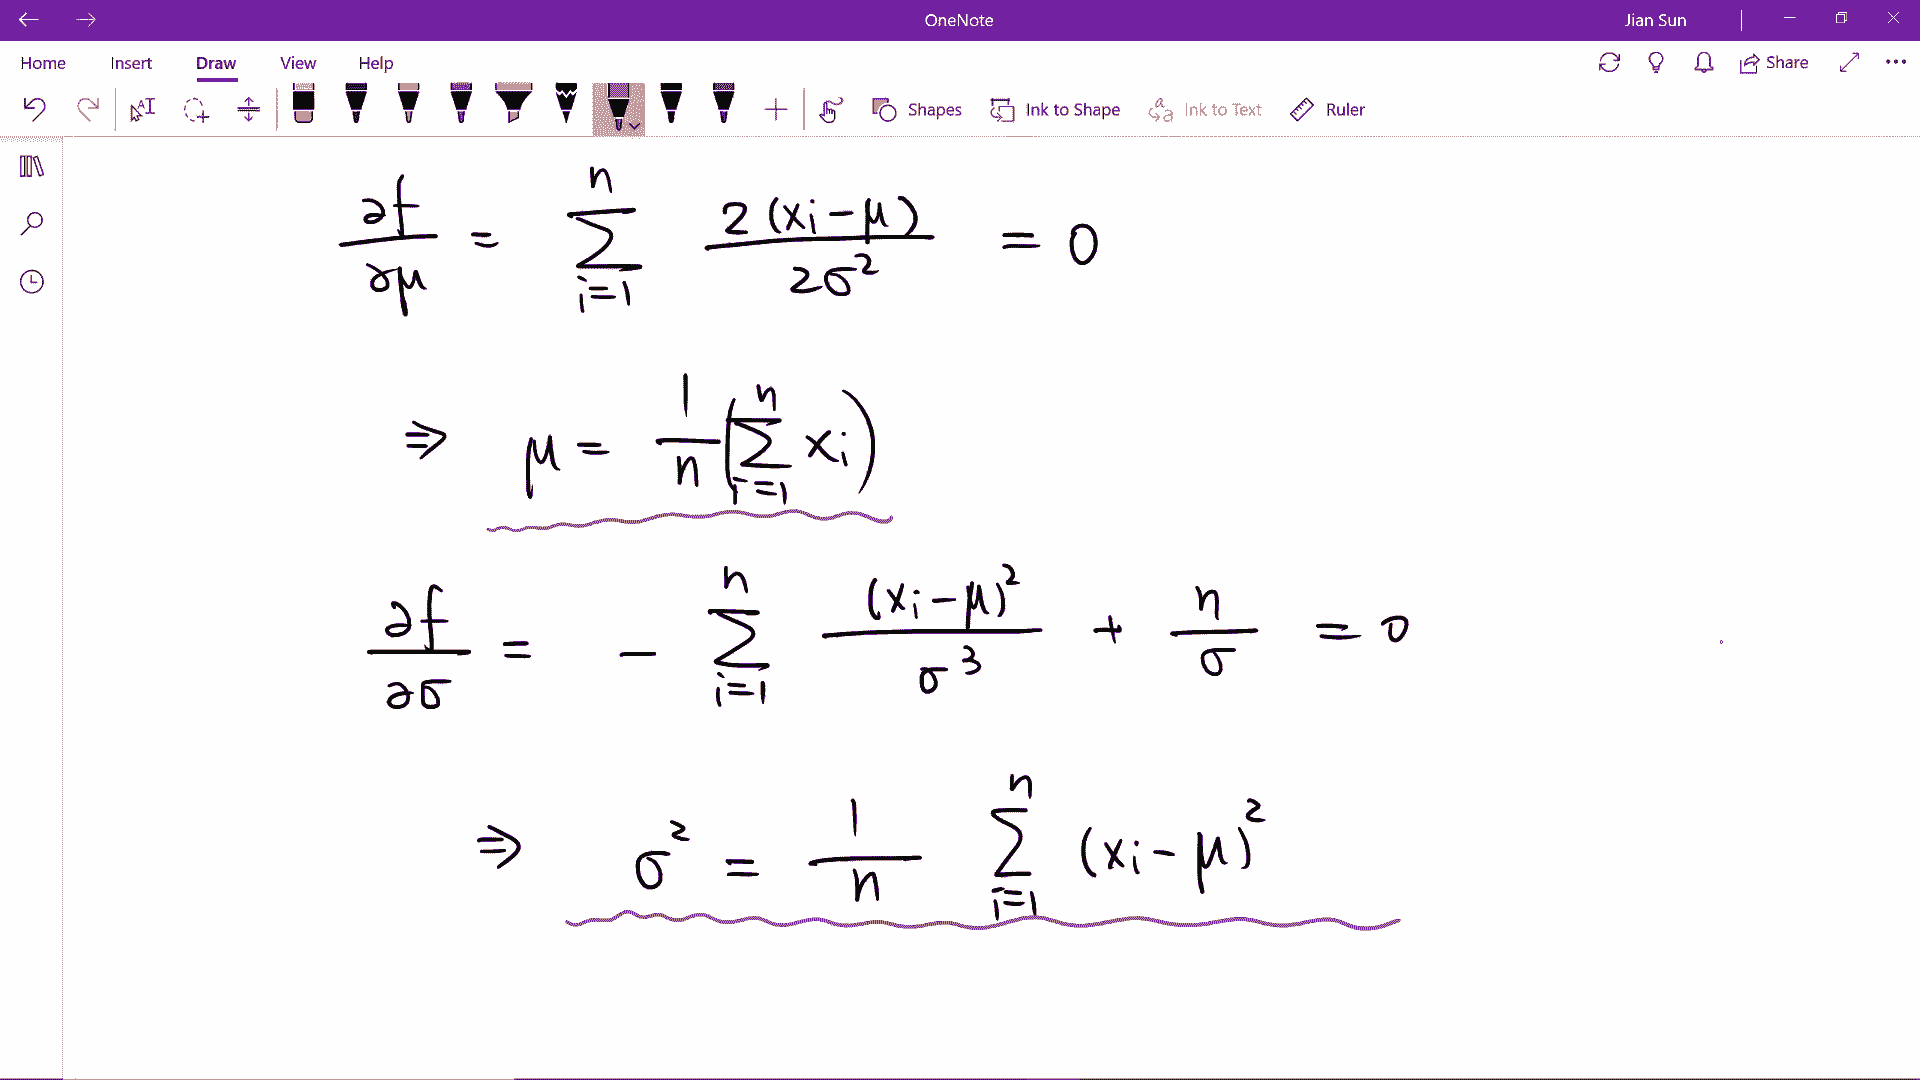 OneNote
Jian Sun
Home Insert Draw View Help
Share
Shapes Ink to Shape Ink to Text Ruler
∂f/∂μ = ∑_{i=1}^{n} 2(xi-μ)/2σ² = 0
⇒ μ = 1/n (∑_{i=1}^{n} xi)
∂f/∂σ = - ∑_{i=1}^{n} (xi-μ)²/σ³ + n/σ = 0
⇒ σ² = 1/n ∑_{i=1}^{n} (xi-μ)²